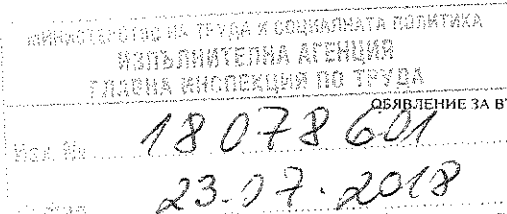 МИНИСТЕРСТВО НА ТРУДА И СОЦИАЛНАТА ПОЛИТИКА
ИЗПЪЛНИТЕЛНА АГЕНЦИЯ
ГЛАВНА ИНСПЕКЦИЯ ПО ТРУДА
ОБЯВЛЕНИЕ ЗА В
Изх. № 18078601
23.07.2018